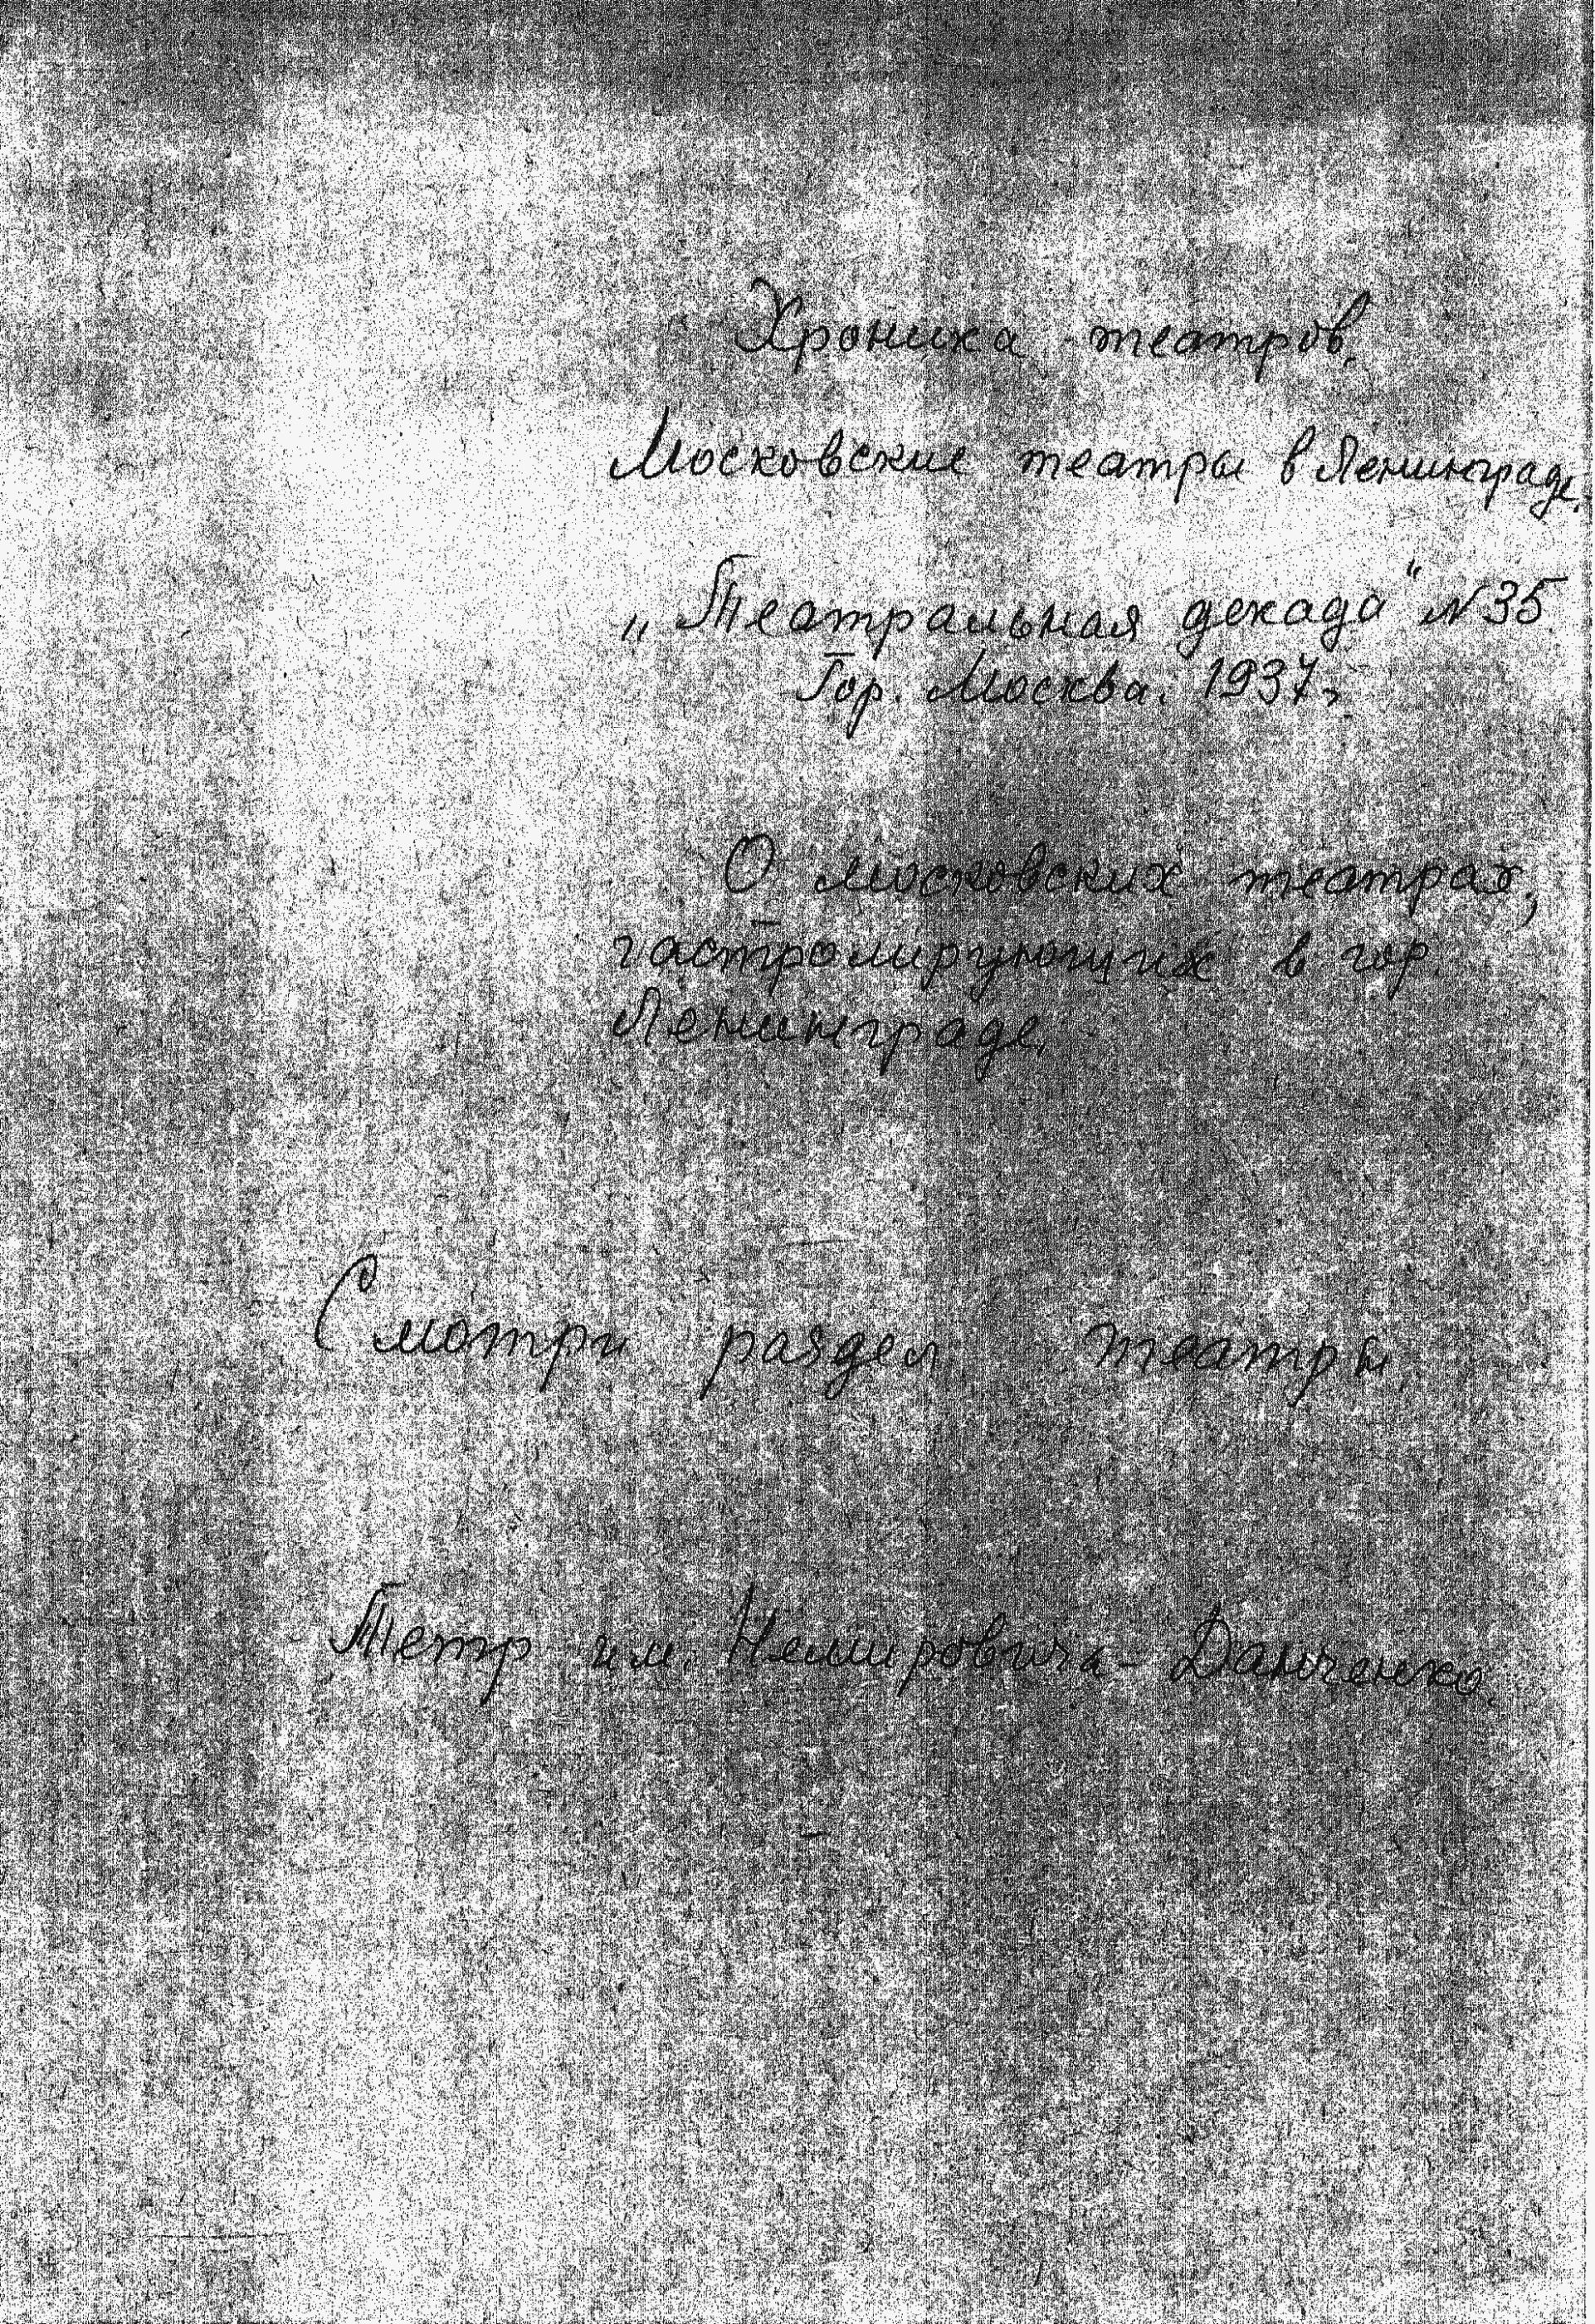 Хроника театров.
Московские театры в Ленинграде.
„Театральная декада“ N 35
Гор. Москва. 1937г.
О московских театрах,
гастролирующих в гор.
Ленинграде.
Смотри раздел театры.
Тетр им. Немировича-Данченко.